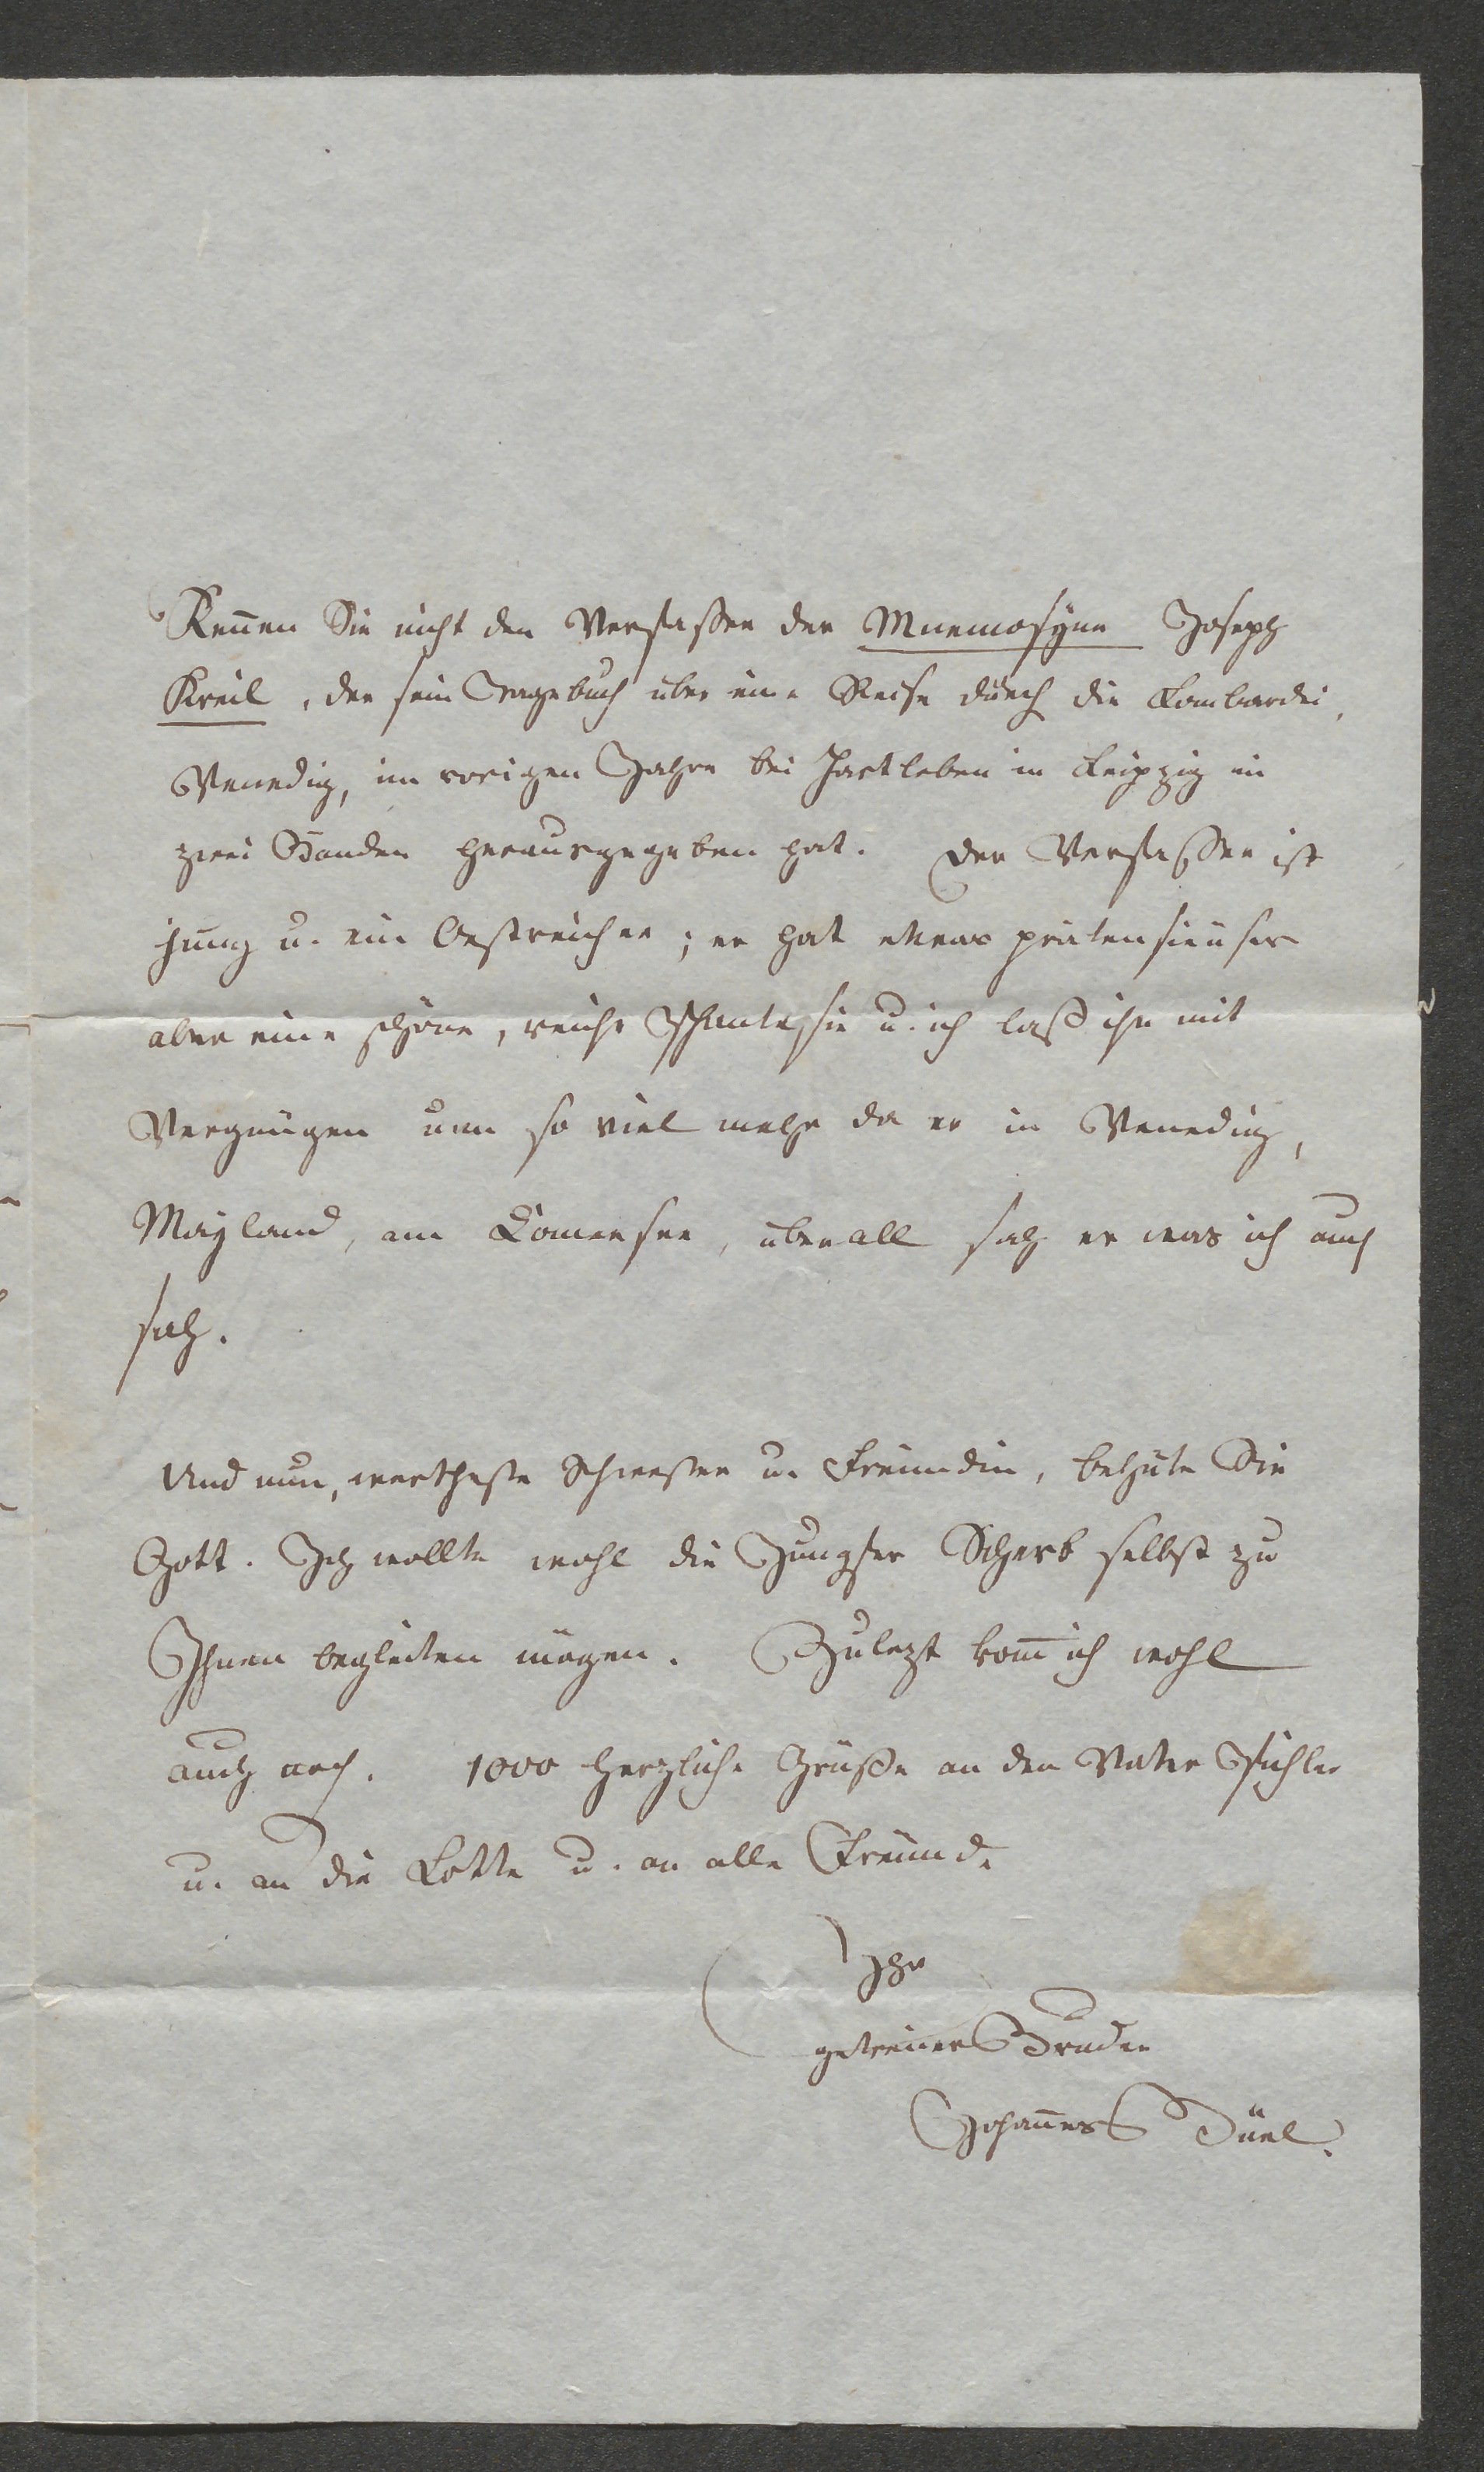 Keñen Sie nicht den Verfaßer der Mnemosÿne Joseph
Kreil, der sein Tagebuch über eine Reise durch die Lombardei,
Venedig, im vorigen Jahre bei Hartleben in Leipzig in
zwei Banden herausgegeben hat. Der Verfaßer ist
jung u. ein Oestreicher; er hat etwas pretensieuses
aber eine schöne, reiche Phantasie u. ich laß ihn mit
Vergnügen um so viel mehr da er in Venedig,
Mayland, am Comersee, überall sah er was ich auch
sah.
Und nun, wertheste Schwester u. Freundin, behüte Sie
Gott. Ich wollte wohl die Jungfer Scherb selbst zu
Ihnen begleiten mögen. Zulezt kom̄ ich wohl
auch noch. 1000 herzliche Grüße an den Vater Pichler
u. an die Lotte u. an alle Freunde
Ihr
getreuer Bruder
Johañes Büel.